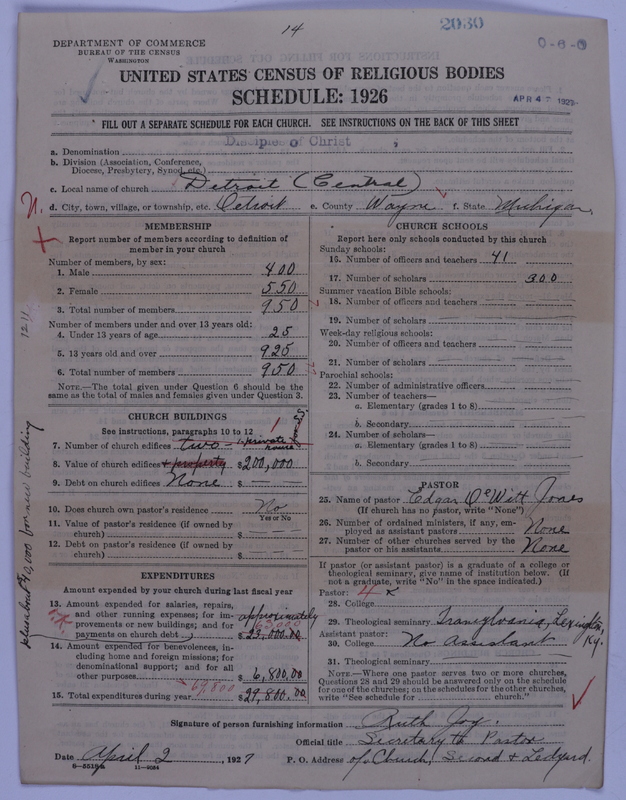 14
2030
0-6-0
DEPARTMENT OF COMMERCE
BUREAU OF THE CENSUS
WASHINGTON
UNITED STATES CENSUS OF RELIGIOUS BODIES
SCHEDULE: 1926
APR 4 - 1927
FILL OUT A SEPARATE SCHEDULE FOR EACH CHURCH. SEE INSTRUCTIONS ON THE BACK OF THIS SHEET
Disciples of Christ
a. Denomination
b. Division (Association, Conference,
Diocese, Presbytery, Synod, etc.)
c. Local name of church Detroit (Central)
d. City, town, village, or township, etc. Detroit e. County Wayne f. State Michigan
MEMBERSHIP
Report number of members according to definition of
member in your church
Number of members, by sex:
1. Male 400
2. Female 550
3. Total number of members 950
Number of members under and over 13 years old:
4. Under 13 years of age 25
5. 13 years old and over 925
6. Total number of members 950
NOTE.—The total given under Question 6 should be the
same as the total of males and females given under Question 3.
CHURCH BUILDINGS
See instructions, paragraphs 10 to 12
7. Number of church edifices two - 1 private house
8. Value of church edifices + property $200,000
9. Debt on church edifices None $
10. Does church own pastor's residence No
Yes or No
11. Value of pastor's residence (if owned by
church) $
12. Debt on pastor's residence (if owned by
church) $
EXPENDITURES
Amount expended by your church during last fiscal year
13. Amount expended for salaries, repairs,
and other running expenses; for im- approximately
provements or new buildings; and for 63,000
payments on church debt $23,000.00
14. Amount expended for benevolences, in-
cluding home and foreign missions; for
denominational support; and for all
other purposes $6,800.00
69,800
15. Total expenditures during year $29,800.00
plus about 40,000 for new building
1211
CHURCH SCHOOLS
Report here only schools conducted by this church
Sunday schools:
16. Number of officers and teachers 41
17. Number of scholars 300
Summer vacation Bible schools:
18. Number of officers and teachers
19. Number of scholars
Week-day religious schools:
20. Number of officers and teachers
21. Number of scholars
Parochial schools:
22. Number of administrative officers
23. Number of teachers—
a. Elementary (grades 1 to 8)
b. Secondary
24. Number of scholars—
a. Elementary (grades 1 to 8)
b. Secondary
PASTOR
25. Name of pastor Edgar DeWitt Jones
(If church has no pastor, write "None")
26. Number of ordained ministers, if any, em-
ployed as assistant pastors None
27. Number of other churches served by the
pastor or his assistants None
If pastor (or assistant pastor) is a graduate of a college or
theological seminary, give name of institution below. (If
not a graduate, write "No" in the space indicated.)
Pastor: 4 x
28. College
29. Theological seminary Transylvania, Lexington, Ky.
Assistant pastor:
30. College No Assistant
31. Theological seminary
NOTE.—Where one pastor serves two or more churches,
Questions 28 and 29 should be answered only on the schedule
for one of the churches; on the schedules for the other churches,
write "See schedule for church."
Signature of person furnishing information Ruth Joy.
Official title Secretary to Pastor
Date April 2, 1927 P. O. Address of Church, Second & Ledyard.
8-5518a 11-9084